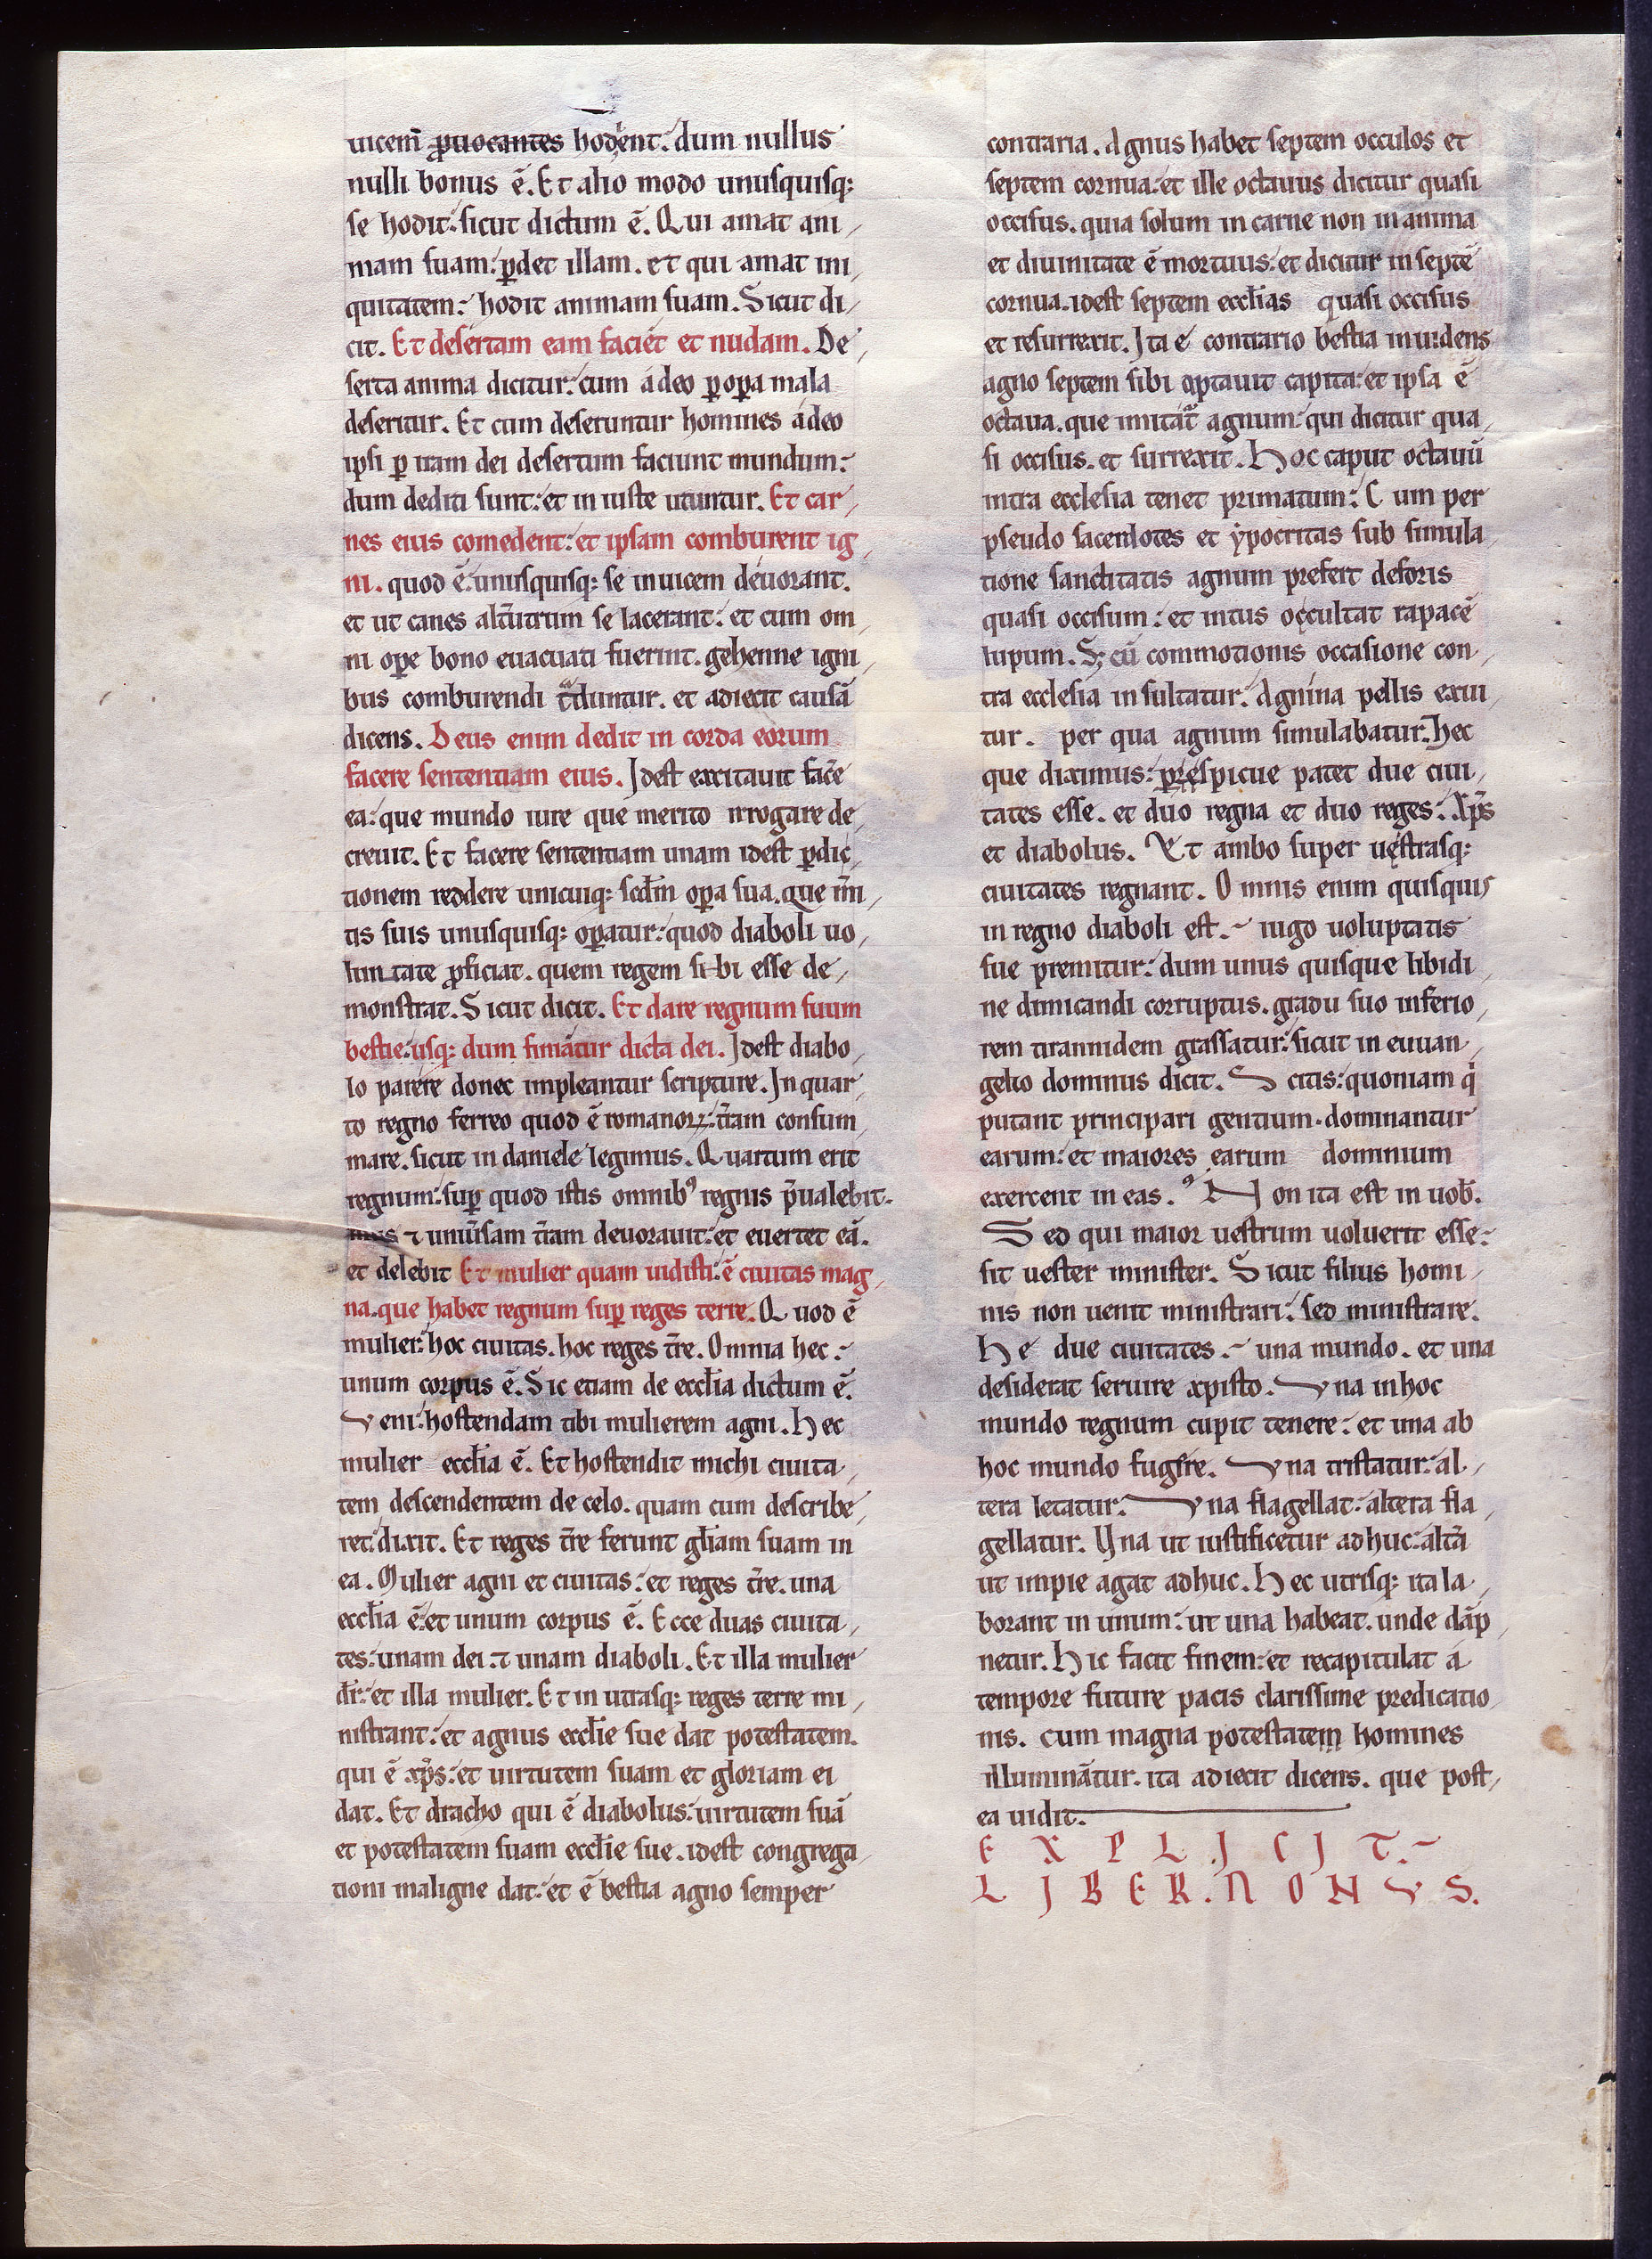 uicem̄ ꝓuocantes hodent. dum nullus
nulli bonus ē. Et alio modo unusquisq;
se hodit. sicut dictum ē. Qui amat ani
mam suam: ꝑdet illam. et qui amat ini
quitatem: hodit animam suam. Sicut di
cit. Et desertam eam faciēt et nudam. De
serta anima dicitur: cum adeo ꝑ oꝑa mala
deseritur. Et cum deseruntur homines adeo
ipsi ꝑ iram dei desertum faciunt mundum:
dum dediti sunt: et in iuste utuntur. Et car
nes eius comedent: et ipsam comburent ig
ni. quod ē: unusquisq; se inuicem deuorant.
et ut canes alt̄utrum se lacerant: et cum om
ni oꝑe bono euacuati fuerint. gehenne igni
bus comburendi tᵃduntur. et adiecit causā
dicens. Deus enim dedit in corda eorum
facere sententiam eius. Idest excitauit fac̄e
ea: que mundo iure que merito irrogare de
creuit. Et facere sententiam unam idest ꝑdic
tionem reddere unicuiq; scd̄m oꝑa sua. que m̄i
tis suis unusquisq; oꝑatur: quod diaboli uo
luntate ꝓficiat. quem regem sibi esse de
monstrat. Sicut dicit. Et dare regnum suum
bestie: usq; dum finiātur dicta dei. Idest diabo
lo parere donec impleantur scripture. In quar
to regno ferreo quod ē romanoꝝ: t̄ram consum
mare. sicut in daniele legimus. Quartum erit
regnum: suꝑ quod istis omnibꝰ regnis p̄ualebit.
⁊ uniūsam t̄ram deuorauit: et euertet eā.
et delebit Et mulier quam uidisti: ē ciuitas mag
na. que habet regnum suꝑ reges terre. Quod ē
mulier: hoc ciuitas. hoc reges t̄re. Omnia hec:
unum corpus ē. Sic etiam de eccl̄ia dictum ē.
Veni: hostendam tibi mulierem agni. Hec
mulier eccl̄ia ē. Et hostendit michi ciuita
tem descendentem de celo. quam cum describe
ret: dixit. Et reges t̄re ferunt gl̄iam suam in
ea. Mulier agni et ciuitas: et reges t̄re. una
eccl̄ia ē: et unum corpus ē. Ecce duas ciuita
tes: unam dei: ⁊ unam diaboli. Et illa mulier
dr̄: et illa mulier. Et in utrasq; reges terre mi
nistrant: et agnus eccl̄ie sue dat potestatem.
qui ē xp̄s: et uirtutem suam et gloriam ei
dat. Et dracho qui ē diabolus: uirtutem suā
et potestatem suam eccl̄ie sue. idest congrega
tioni maligne dat: et ē bestia agno semper
contraria. Agnus habet septem occulos et
septem cornua: et ille octauus dicitur quasi
occisus. quia solum in carne non in anima
et diuinitate ē mortuus: et dicitur in septē
cornua. idest septem eccl̄ias quasi occisus
et resurrexit. Ita e contrario bestia inuidens
agno septem sibi aptauit capita: et ipsa ē
octaua. que imitat̄ agnum: qui dicitur qua
si occisus. et surrexit. Hoc caput octauū
intra ecclesia tenet primatum: Cum per
pseudo sacerdotes et ypocritas sub simula
tione sanctitatis agnum prefert deforis
quasi occisum: et intus occultat rapacē
lupum. Sꝫ cū commotionis occasione con
tra ecclesia insultatur: Agnina pellis exui
tur. per qua agnum simulabatur. Hec
que diximus: prespicue patet due ciui
tates esse. et duo regna et duo reges: Xp̄s
et diabolus. Et ambo super uestrasq;
ciuitates regnant. Omnis enim quisquis
in regno diaboli est. iugo uoluptatis
sue premitur: dum unus quisque libidi
ne dimicandi corruptus. gradu suo inferio
rem tirannidem grassatur: sicut in euuan
gelio dominus dicit. Scitis: quoniam qi
putant principari gentium. dominantur
earum: et maiores earum dominium
exercent in eas. Non ita est in uob̄.
Sed qui maior uestrum uoluerit esse:
sit uester minister. Sicut filius homi
nis non uenit ministrari: sed ministrare.
He due ciuitates. una mundo. et una
desiderat seruire xpisto. Vna in hoc
mundo regnum cupit tenere: et una ab
hoc mundo fugere. Vna tristatur: al
tera letatur: Vna flagellat: altera fla
gellatur. Vna ut iustificetur adhuc: alt̄a
ut impie agat adhuc. Hec utrisq; ita la
borant in unum: ut una habeat. unde dāp
netur. Hic facit finem: et recapitulat a
tempore future pacis clarissime predicatio
nis. cum magna potestatem homines
illuminātur. ita adiecit dicens. que post
ea uidit.
EXPLICIT.
LIBER. NONVS.